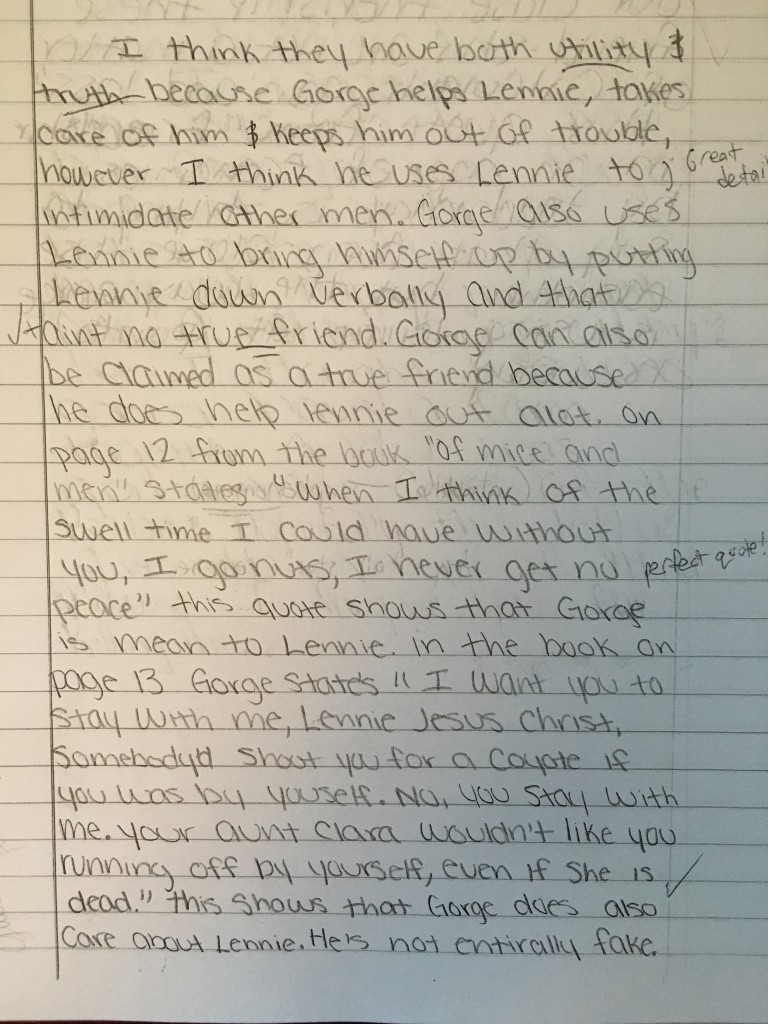 I think they have both utility &
truth because Gorge helps Lennie, takes
care of him & keeps him out of trouble,
however I think he uses Lennie to
Great
detail
intimidate other men. Gorge also uses
Lennie to bring himself up by putting
Lennie down verbally and that
√+ aint no true friend. Gorge can also
be claimed as a true friend because
he does help lennie out alot. on
page 12 from the book "Of mice and
men" states "When I think of the
swell time I could have without
you, I go nuts, I never get no
perfect quote!
peace" this quote shows that Gorge
is mean to Lennie. in the book on
page 13 Gorge states " I want you to
stay with me, Lennie Jesus Christ,
Somebody'd Shoot you for a Coyote if
you was by youself. No, you stay with
me. your aunt Clara wouldn't like you
running off by yourself, even if She is ✓
dead." this shows that Gorge does also
Care about Lennie. He's not entirally fake.